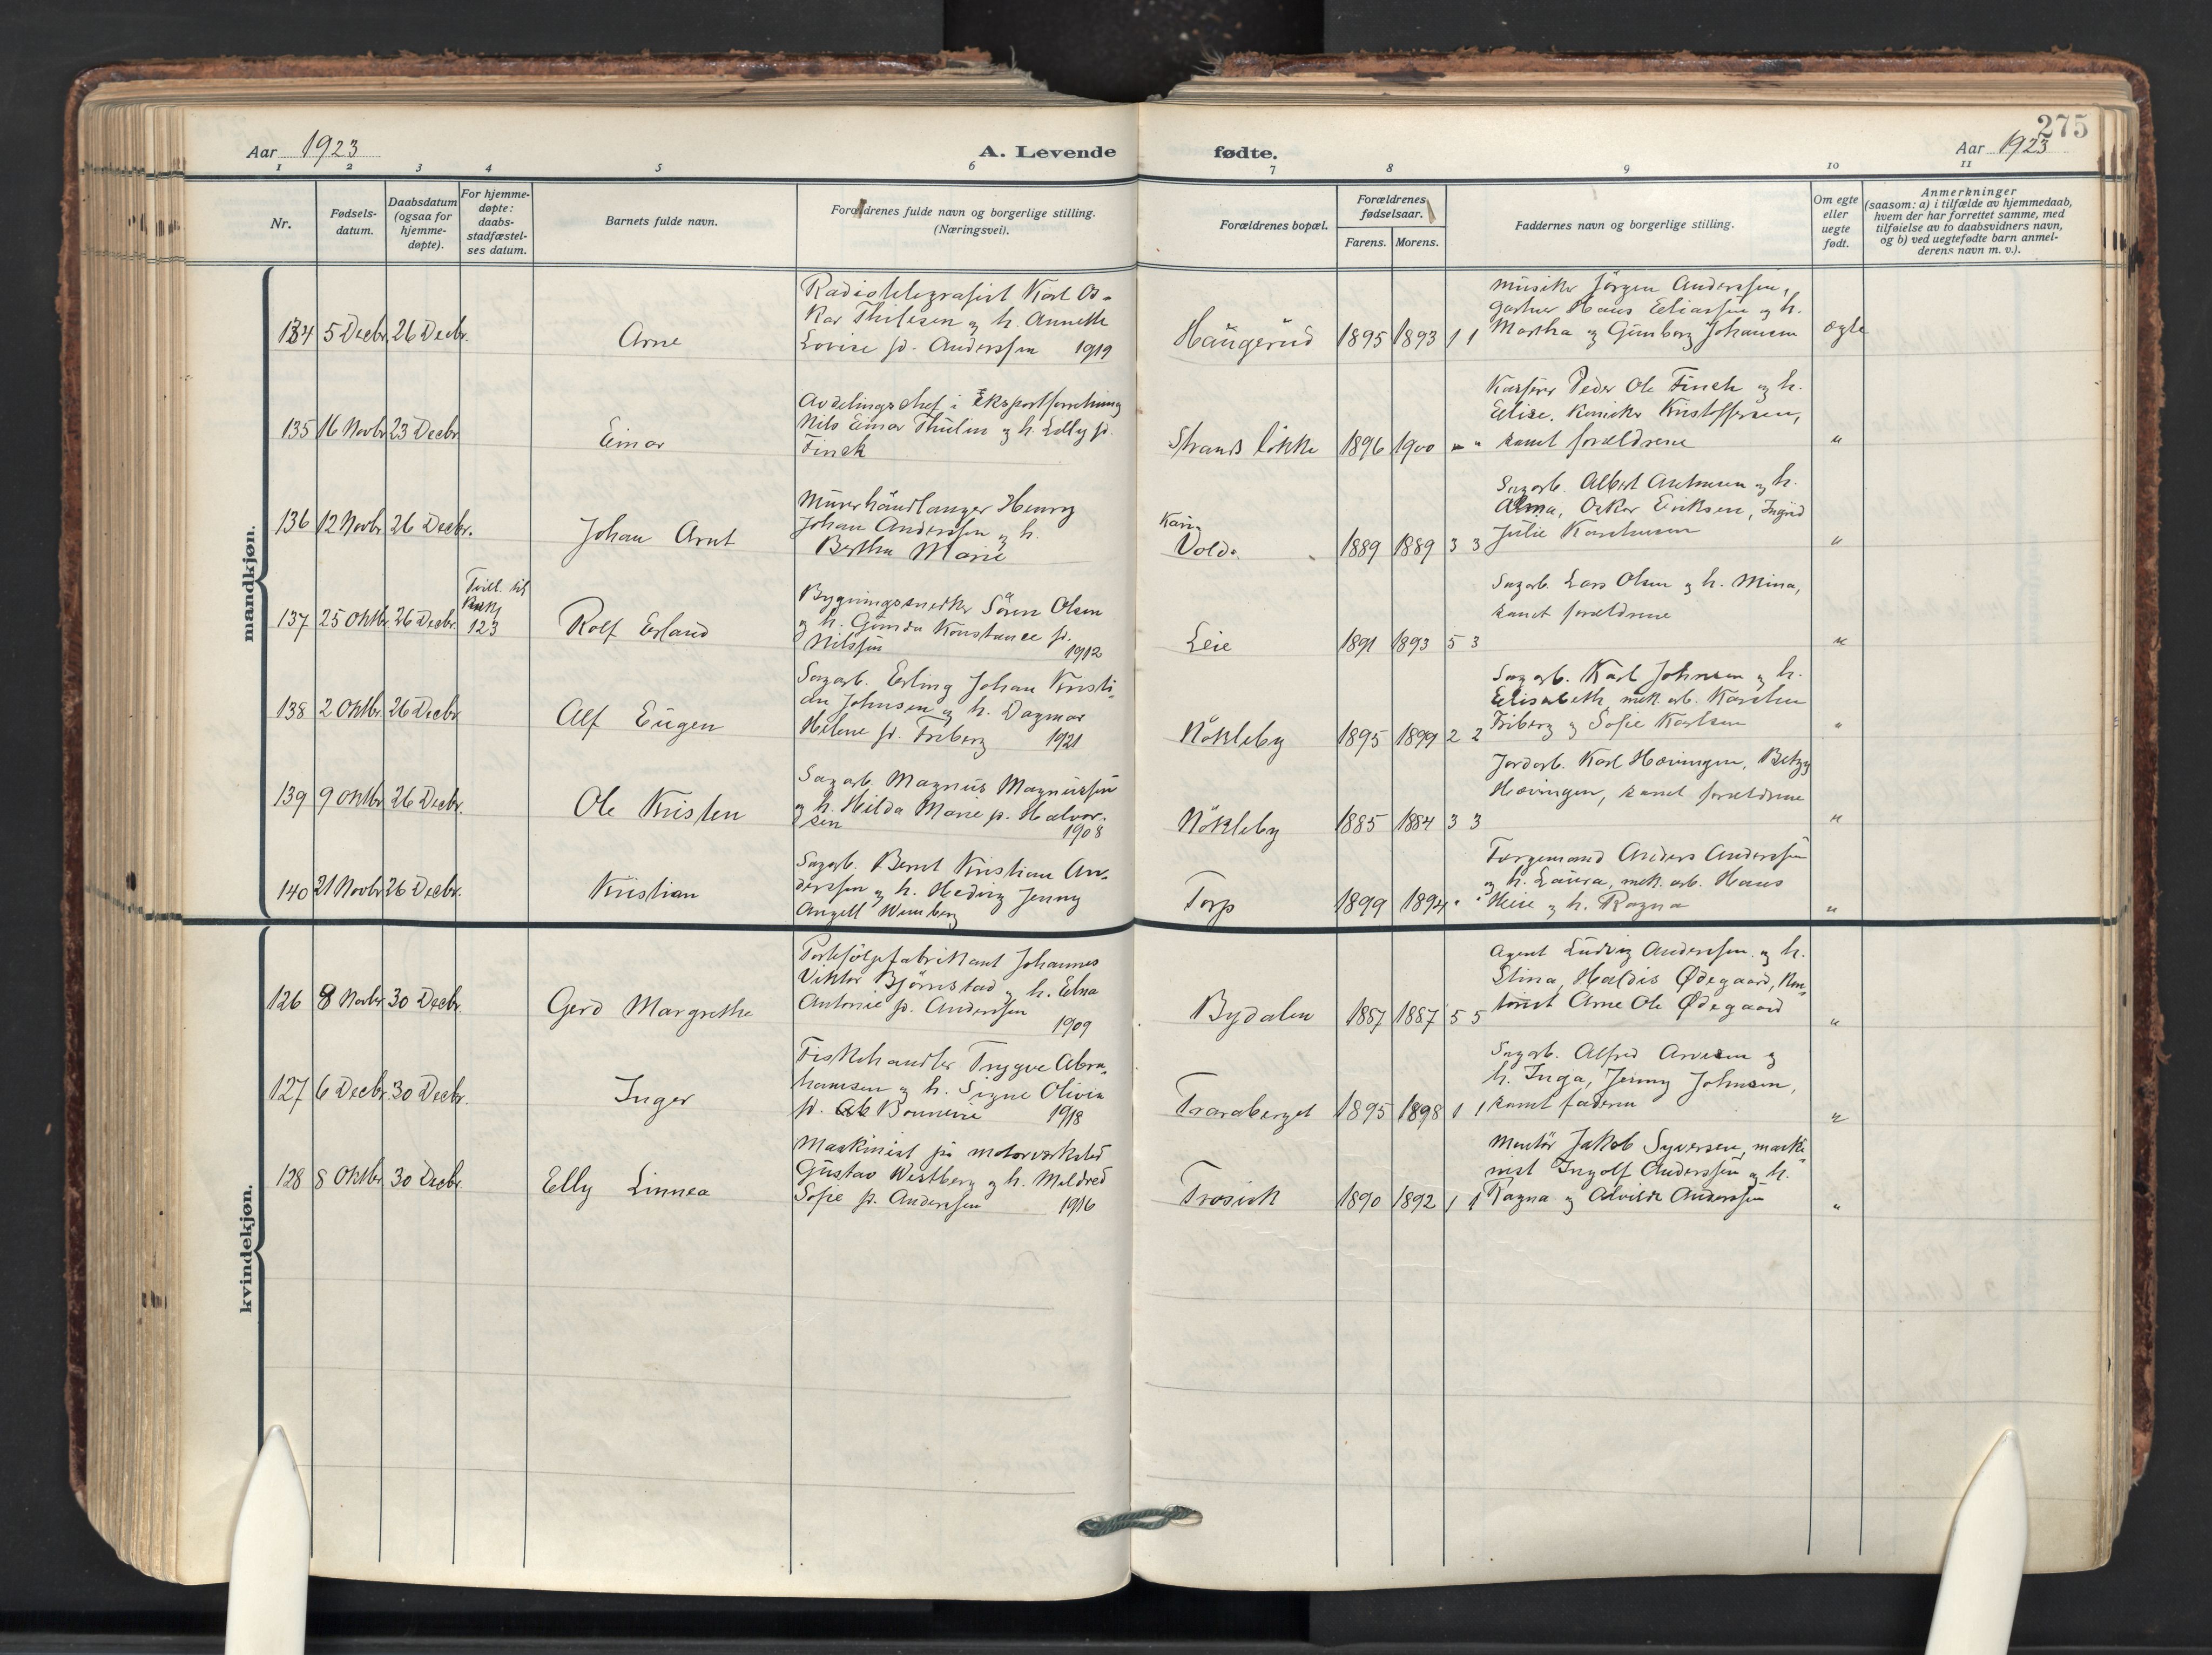 275
Aar 1923
A. Levende
fødte.
Aar 1923
1 2 3 4 5 6 7 8 9 10 11
Nr.
Fødsels-
datum.
Daabsdatum
(ogsaa for
hjemme-
døpte).
For hjemme-
døpte:
daabs-
stadfæstel-
ses datum.
Barnets fulde navn.
Forældrenes fulde navn og borgerlige stilling.
(Næringsvei).
Forældrenes bopæl.
Forældrenes
fødselsaar.
Farens. Morens.
Faddernes navn og borgerlige stilling.
Om egte
eller
uegte
født.
Anmerkninger
(saasom: a) i tilfælde av hjemmedaab,
hvem der har forrettet samme, med
tilføielse av to daabsvidners navn,
og b) ved uegtefødte barn anmel-
derens navn m. v.).
mandkjøn.
134 5 Decbr. 26 Decbr.
Arne
Radiotelegrafist Karl Os-
kar Thilesen og h. Annette
Lovise fd. Anderssen 1919
Haugerud
1895 1893 1 1
Musiker Jörgen Anderssen,
gartner Hans Eliassen og h.
Martha og Gunborg Johansen
egte
135 16 Novbr 23 Decbr
Einar
Avdelingschef i Eksportforretning
Nils Einar Thulin og h. Elly fd.
Finck
Strands løkke
1896 1900 " "
Kasserer Peder Ole Finck og h.
Elise, Kristoffersen,
samt forældrene
"
136 12 Novbr 26 Decbr.
Johan Arnt
Murerhåndlanger Henry
Johan Anderssen og h.
Bertha Marie
Kari-
Volds
1889 1889 3 3
Sagarb. Albert Arntsen og h.
Alma, Oskar Eriksen, Ingrid
Julie Karlsen
"
137 25 Oktbr 26 Decbr.
Tvill. til
123
Rolf Erland
Bygningssnedker Sören Olsen
og h. Gunda Konstance fd.
Nilssen 1912
Leie
1891 1893 5 3
Sagarb. Lars Olsen og h. Mina,
samt forældrene
"
138 2 Oktbr. 26 Decbr
Alf Eugen
Sagarb. Erling Johan Kristi-
an Johnsen og h. Dagmar
Helene fd. Friberg 1921
Nökleby
1895 1899 2 2
Sagarb. Karl Johnsen og h.
Elisabeth, mek. arb. Karsten
Friberg og Sofie Karlsen
"
139 9 Oktbr. 26 Decbr.
Ole Kristen
Sagarb. Magnus Magnussen
og h. Hilda Marie fd. Halvor-
sen 1908
Nökleby
1885 1884 3 3
Jordarb. Karl Hæringen, Betzy
Hæringen, samt forældrene
"
140 21 Novbr 26 Decbr.
Kristian
Sagarb. Bernt Kristian An-
derssen og h. Hedvig Jenny
Angell Wimberg
Torp
1899 1894 " "
Anders Anderssen
og h. Laura, mek. arb. Hans
Heie og h. Ragna
"
kvindekjøn.
126 8 Novbr 30 Decbr.
Gerd Margrethe
Porteföljefabrikant Johannes
Viktor Bjørnstad og h. Elna
Antonie fd. Anderssen
1909
Bydalen
1887 1887 5 5
Agent Ludvig Anderssen og h.
Stina, Haldis Ødegaard, Kon-
torist Arne Ole Ødegaard
"
127 6 Decbr. 30 Decbr.
Inger
Fiskehandler Trygve Abra-
hamsen og h. Signe Olivia
fd. 1918
Traraberget
1895 1898 1 1
Sagarb. Alfred Arvesen og
h. Inga, Jenny Johnsen,
samt faderen
"
128 8 Oktbr 30 Decbr
Elly Linnea
Maskinist på motorverksted
Gustav Westberg og h. Mildred
Sofie fd. Anderssen 1916
Trosvik
1890 1892 1 1
Montør Jakob Syversen, maski-
nist Ingolf Anderssen og h.
Ragna og Alvilde Anderssen
"